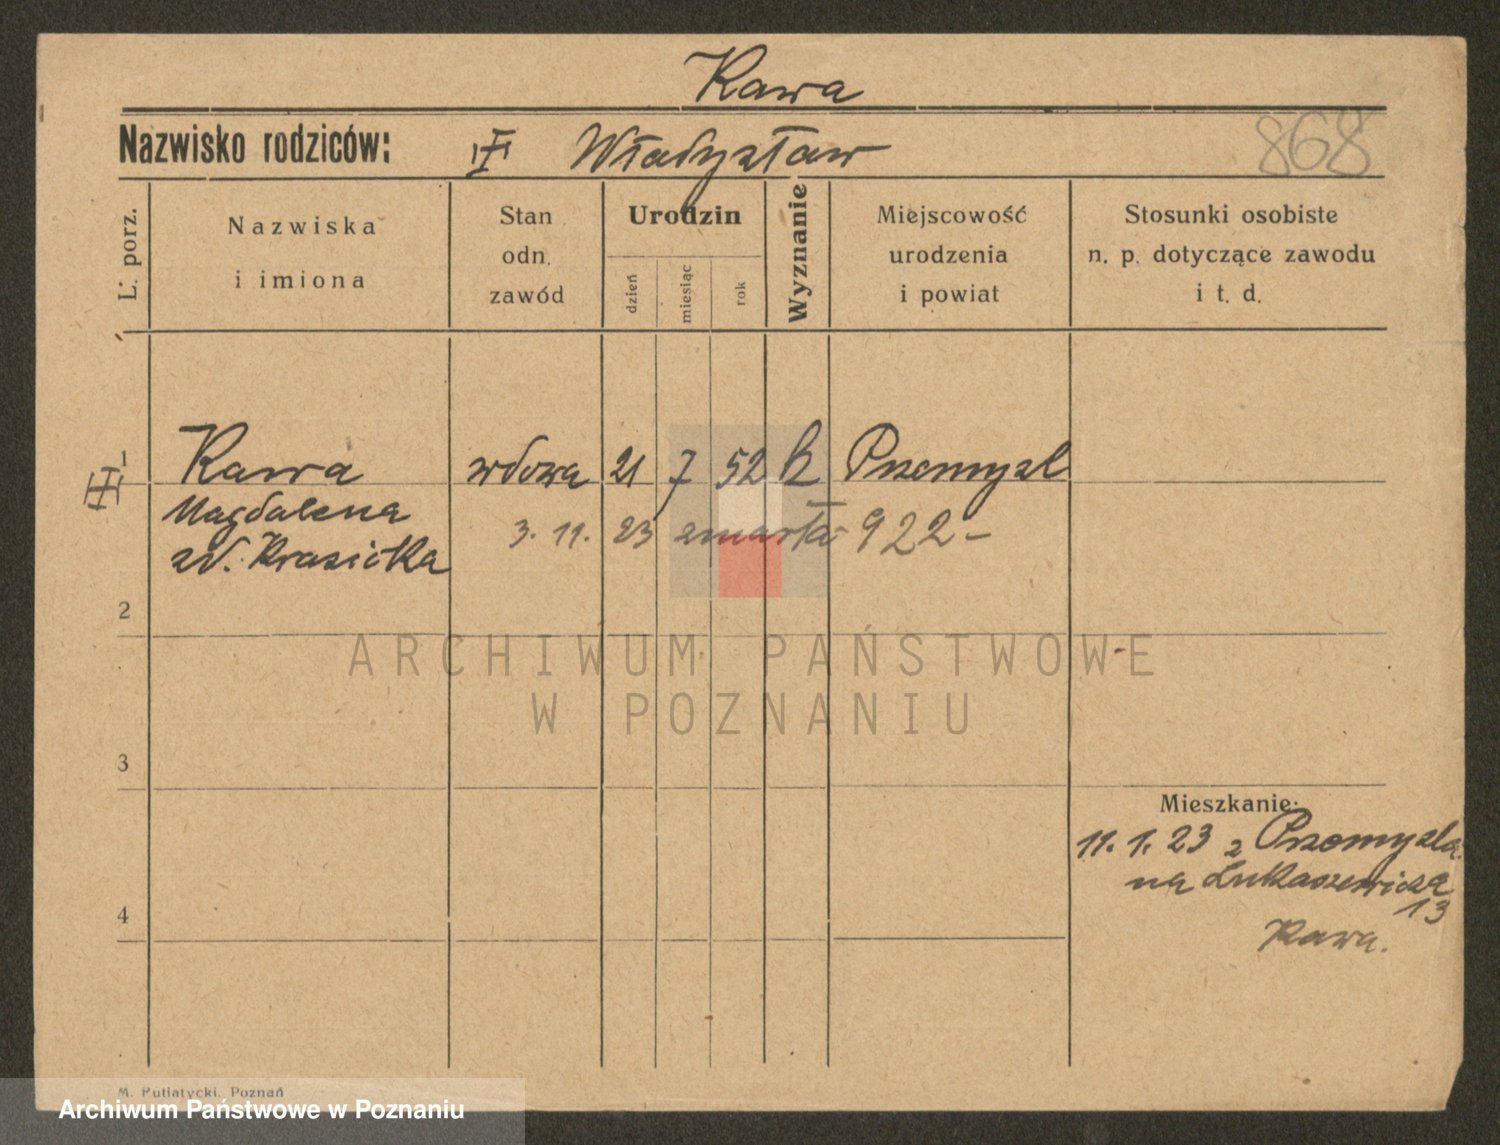 Kawa
Nazwisko rodziców: Władysław
868
L. porz.
Nazwiska
i imiona
Stan
odn.
zawód
Urodzin
dzień
miesiąc
rok
Wyznanie
Miejscowość
urodzenia
i powiat
Stosunki osobiste
n. p. dotyczące zawodu
i t. d.
1 Kawa wdowa 21 7 52 k Przemyśl
Magdalena
3. 11. 23 zmarła 922 -
zd. Krasicka
2
ARCHIWUM PAŃSTWOWE
W POZNANIU
3
Mieszkanie:
11. 1. 23 z Przemyśla
na Łukaszewicza
13
4
Kawa.
M. Putiatycki, Poznań
Archiwum Państwowe w Poznaniu